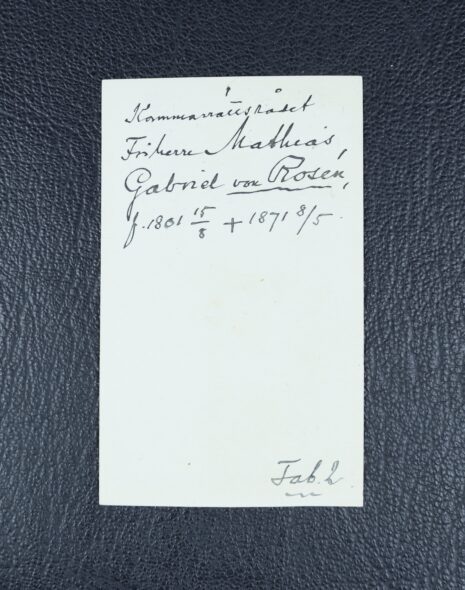 Kammarrättsrådet
Friherre Mathias
Gabriel von Rosén,
f. 1801 15/8 + 1871 8/5.
Tab. 2.